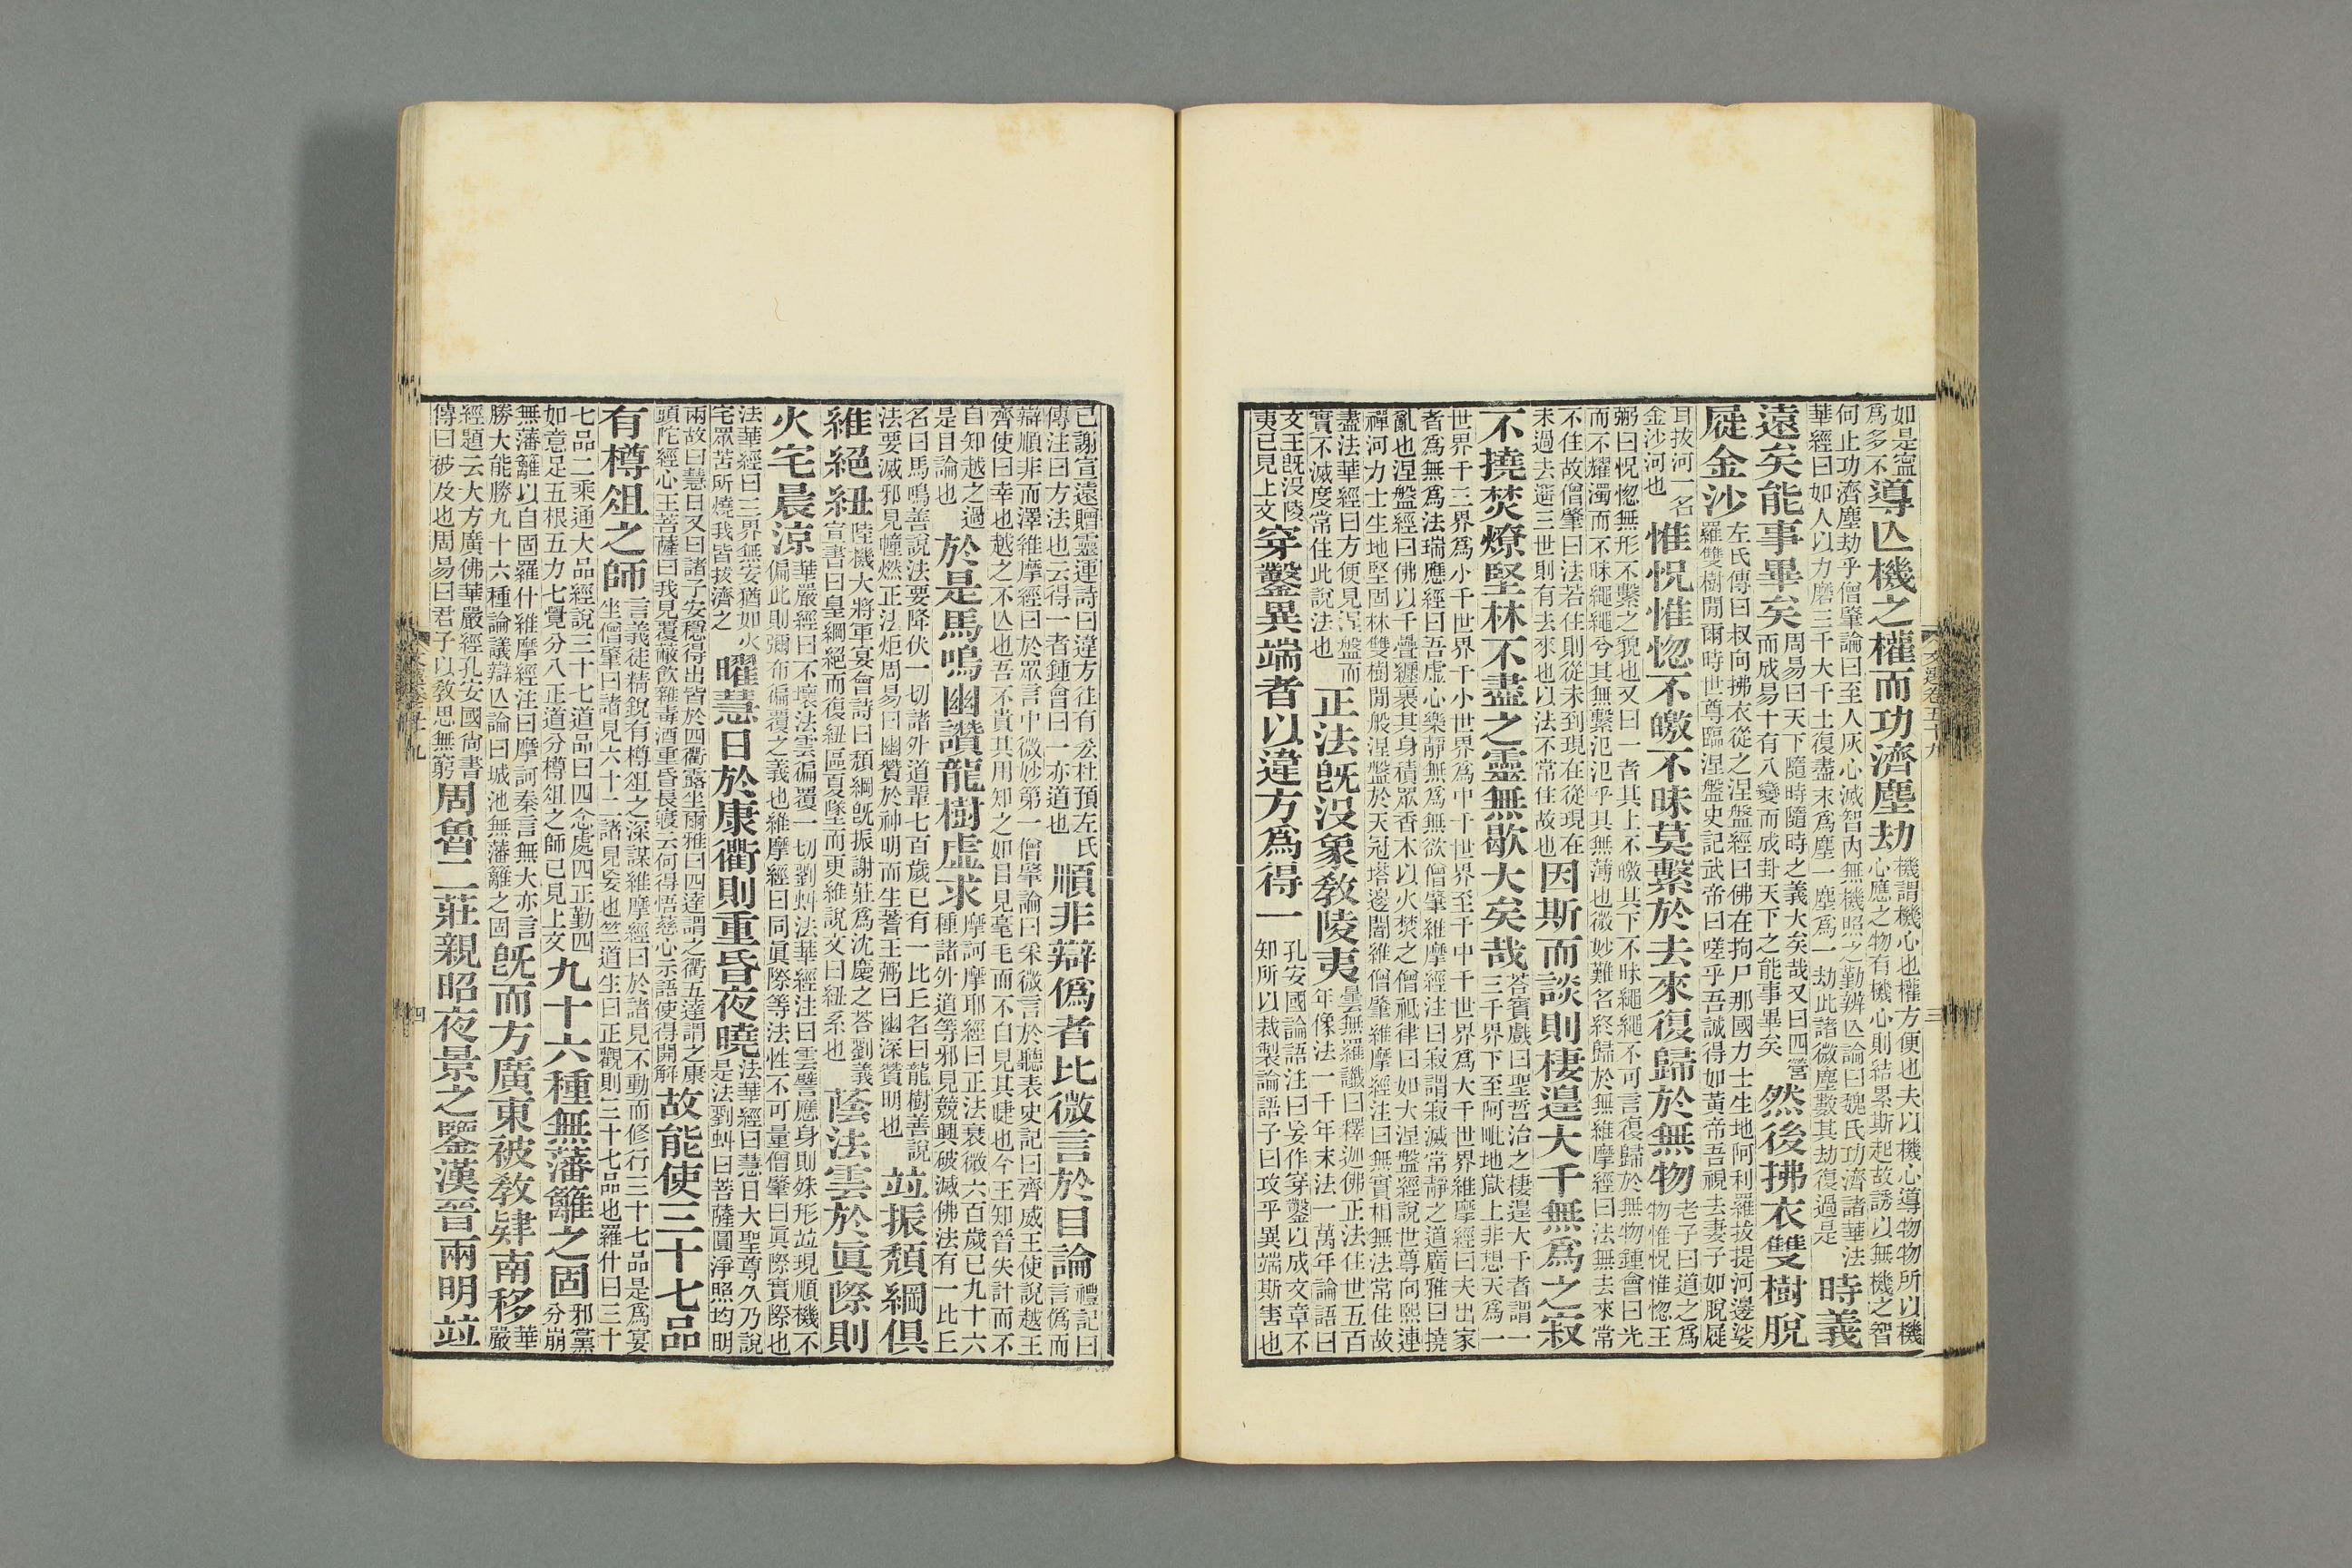 如是盇為多不導亾機之權而功濟塵劫機謂機心也權方便也夫以機心導物物所以機心應之物有機心則結累斯起故誘以無機之智
何止功濟塵劫乎僧肇論曰至人灰心滅智內無機照之勤辨亾論曰魏氏功濟諸華法華經曰如人以力磨三千大千土復盡末為塵一塵為一劫此諸微塵數其劫復過是時義
遠矣能事畢矣周易曰天下隨時隨時之義大矣哉又曰四營而成易十有八變而成卦天下之能事畢矣然後拂衣雙樹脫
屣金沙左氏傳曰叔向拂衣從之涅盤經曰佛在拘尸那國力士生地阿利羅拔提河邊娑羅雙樹閒爾時世尊臨涅盤史記武帝曰嗟乎吾誠得如黃帝吾視去妻子如脫屣
耳拔河一名金沙河也惟怳惟惚不皦不昧莫繫於去來復歸於無物老子曰道之為物惟怳惟惚王
弼曰怳惚無形不繫之貌也又曰一者其上不皦其下不昧繩繩不可言復歸於無物鍾會曰光而不耀濁而不昧繩繩兮其無繫氾氾乎其無薄也微妙難名終歸於無維摩經曰法無去來常
不住故僧肇曰法若住則從未到現在從現在未過去遷三世則有去來也以法不常住故也因斯而談則棲遑大千無為之寂
不撓焚燎堅林不盡之靈無歇大矣哉荅賓戲曰聖哲治之棲遑大千者謂一三千界下至阿毗地獄上非想天為一
世界千三界為小千世界千小世界為中千世界至千中千世界為大千世界維摩經曰夫出家者為無為法瑞應經曰吾虛心樂靜無為無欲僧肇維摩經注曰寂謂寂滅常靜之道廣雅曰撓
亂也涅盤經曰佛以千疊纏裹其身積眾香木以火焚之僧祇律曰如大涅盤經說世尊向熙連禪河力士生地堅固林雙樹閒般涅盤於天冠塔邊闍維僧肇維摩經注曰無實相無法常住故
盡法華經曰方便見涅盤而實不滅度常住此說法也正法旣没象教陵夷曇無羅讖曰釋迦佛正法住世五百年像法一千年末法一萬年論語曰
文王旣没陵夷已見上文穿鑿異端者以違方為得一孔安國論語注曰妄作穿鑿以成文章不知所以裁製論語子曰攻乎異端斯害也
已謝宣遠贈靈運詩曰違方往有㳒杜預左氏傳注曰方法也云得一者鍾會曰一亦道也順非辯偽者比微言於目論禮記曰言偽而
辯順非而澤維摩經曰於眾言中微妙第一僧肇論曰采微言於聽表史記曰齊威王使說越王齊使曰幸也越之不亾也吾不貴其用知之如目見毫毛而不自見其睫也今王知晉失計而不
自知越之過是目論也於是馬鳴幽讚龍樹虛求摩訶摩耶經曰正法衰微六百歲已九十六種諸外道等邪見競興破滅佛法有一比丘
名曰馬鳴善說法要降伏一切諸外道輩七百歲已有一比丘名曰龍樹善說法要滅邪見幢燃正法炬周易曰幽贊於神明而生蓍王弼曰幽深贊明也並振頹綱俱
維絕紐陸機大將軍宴會詩曰頹綱旣振謝莊為沈慶之荅劉義宣書曰皇綱絕而復紐區夏墜而更維說文曰紐系也蔭法雲於眞際則
火宅晨涼華嚴經曰不壞法雲徧覆一切劉虯法華經注曰雲譬應身則殊形並現順機不偏此則彌布徧覆之義也維摩經曰同眞際等法性不可量僧肇曰眞際實際也
法華經曰三界無安猶如火宅眾苦所燒我皆拔濟之曜慧日於康衢則重昏夜曉法華經曰慧日大聖尊久乃說是法劉虯曰菩薩圓淨照均明
兩故曰慧日又曰諸子安穩得出皆於四衢露坐爾雅曰四達謂之衢五達謂之康頭陀經心王菩薩曰我見覆蔽飲雜毒酒重昏長寢云何得悟慈心示語使得開解故能使三十七品
有樽俎之師言義徒精銳有樽俎之深謀維摩經曰於諸見不動而修行三十七品是為宴坐僧肇曰諸見六十二諸見妄也竺道生曰正觀則三十七品也羅什曰三十
七品二乘通大品經說三十七道品曰四念處四正勤四如意足五根五力七覺分八正道分樽俎之師已見上文九十六種無藩籬之固邪黨分崩
無藩籬以自固羅什維摩經注曰摩訶秦言無大亦言勝大能勝九十六種論議辯亾論曰城池無藩籬之固旣而方廣東被敎肄南移華嚴
經題云大方廣佛華嚴經孔安國尚書傳曰被及也周易曰君子以教思無窮周魯二莊親昭夜景之鑒漢晉兩明並
文選卷五十九
三
四